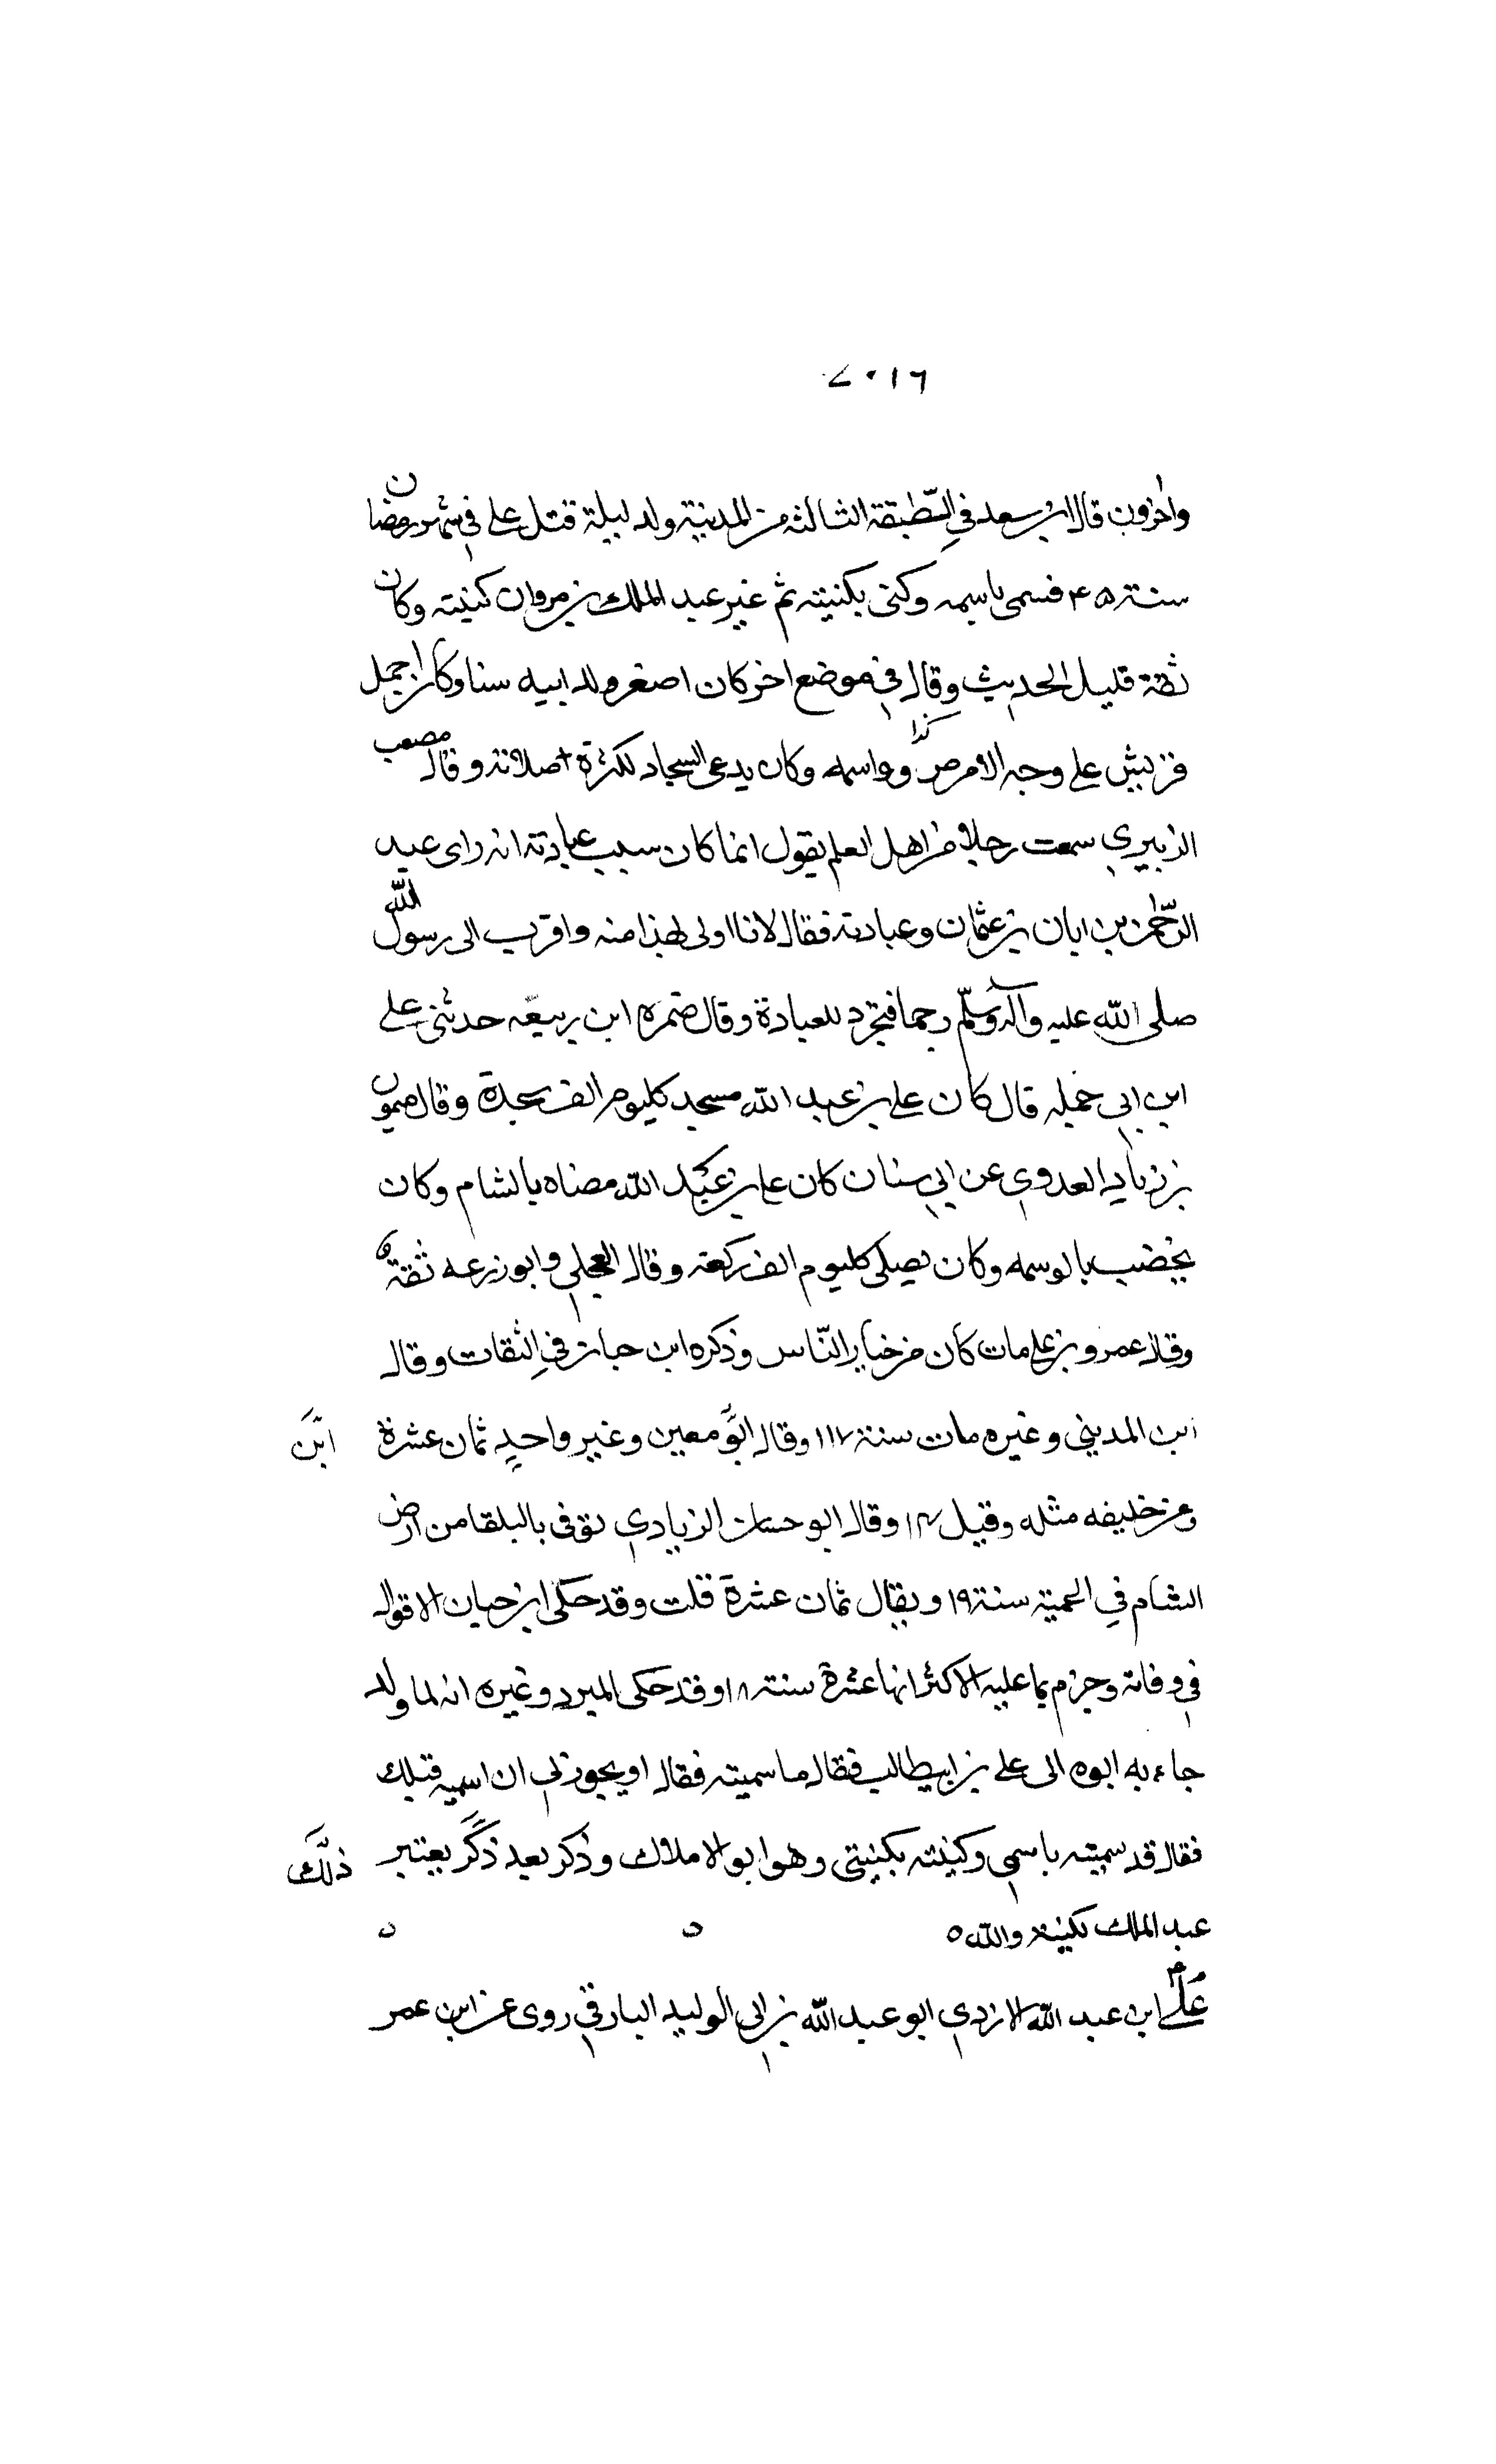 ٢٠١٦
واخرون قال ابن سعد في الطبقة الثالثه من المدنية ولد ليلة قتل علي في شهر رمضان
سنة ۴۵ فسمى باسمه وكنى بكنيته ثم غير عبد الملك بن مروان كنيته وكان
ثقة قليل الحديث وقال في موضع اخر كان اصغر ولد ابيه سنا وكان اجمل
قريش على وجه الامرص كذا وواسمه وكان يدعى السجاد لكثرة صلاته وقال مصعب
الزبيري سمعت رجلا من اهل العلم يقول انما كان سبب عبادته انه راى عبد
الرحمن بن ابان بن عثمان وعبادته فقال لانا اولى لهذا منه واقرب الى رسول الله
صلى الله عليه وآله وسلم رحما فتجرد للعبادة وقال ضمره ابن ربيعه حدثني على
ابن ابي حمله قال كان علي بن عبد الله مسجد كليوم الف سجدة وقال ميمون
بن زياد العدوي عن ابي سنان كان علي بن عبد الله مضناه بالشام وكان
يخضب بالوسمه وكان يصلى كليوم الف ركعه وقال العجلي وابو زرعه ثقة
وقال عمرو بن علي مات كان من خيار الناس وذكره ابن حبان في الثقات وقال
ابن المديني وغيره مات سنة ١١٧ وقال ابو معين وغير واحد ثمان عشرة ابن
وعن خليفه مثله وقيل ١١٤ وقال ابو حسان الزيادي توفى بالبلقا من ارض
الشام في الحميمة سنة ١٩ ويقال ثمان عشرة قلت وقد حكى ابن حبان الاقوال
في وفاته وجزم بما عليه الاكثر انها عشرة سنة ١٨ وقد حكى المبرد وغيره انه لما ولد
جاء به ابوه الى علي بن ابيطالب فقال ما سميته فقال او يجوز لي ان اسميه قبلك
فقال قد سميته باسمي وكنيته بكنيتي وهو ابو الاملاك وذكر بعد ذكر يعتبر ذلك
عبد الملك بكنيته والله ٥
علي ابن عبد الله الازدي ابو عبد الله بن ابي الوليد البارقي روى عن ابن عمر